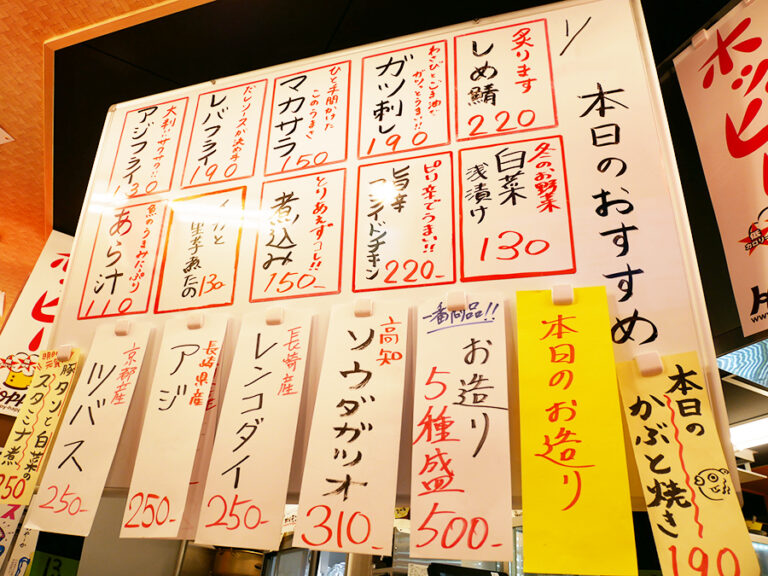 本日のおすすめ
炙ります
しめ鯖
220
わさびとごま油で
ガツっとうまい!!
ガツ刺し
190
ひと手間かけた
このうまさ
マカサラ
150
だしソースが決め手
レバフライ
190
大判!!サクサク!!
アジフライ
130
冬のお野菜
白菜
浅漬け
130
ピリ辛でうまい!!
旨辛
フライドチキン
220-
とりあえずコレ!!
煮込み
150-
130
魚のうまみたっぷり
あら汁
110
本日の
かぶと焼き
190
本日のお造り
一番同品!!
お造り
5種盛
500-
高知
ソウダガツオ
310-
長崎産
レンコダイ
250-
長崎県産
アジ
250-
京都産
ツバス
250-
豚タンと白菜の
スタミナ煮
250
ホッピー
ホッピー
13